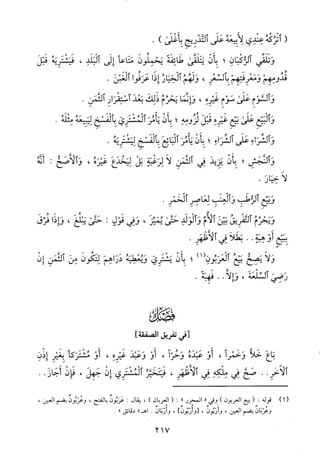 ( أَتْرُكْهُ عِنْدِي لِأَبِيعَهُ عَلَى ٱلتَّدْرِيجِ بِأَغْلَى ) .
وَتَلَقِّي ٱلرُّكْبَانِ ؛ بِأَنْ يَتَلَقَّى طَائِفَةً يَحْمِلُونَ مَتَاعاً إِلَى ٱلْبَلَدِ ، فَيَشْتَرِيَهُ قَبْلَ
قُدُومِهِمْ وَمَعْرِفَتِهِمْ بِٱلسِّعْرِ ، وَلَهُمُ ٱلْخِيَارُ إِذَا عَرَفُوا ٱلْغَبْنَ .
وَٱلسَّوْمُ عَلَى سَوْمِ غَيْرِهِ ، وَإِنَّمَا يَحْرُمُ ذَلِكَ بَعْدَ ٱسْتِقْرَارِ ٱلثَّمَنِ .
وَٱلْبَيْعُ عَلَى بَيْعِ غَيْرِهِ قَبْلَ لُزُومِهِ ؛ بِأَنْ يَأْمُرَ ٱلْمُشْتَرِيَ بِٱلْفَسْخِ لِيَبِيعَهُ مِثْلَهُ .
وَٱلشِّرَاءُ عَلَى ٱلشِّرَاءِ ؛ بِأَنْ يَأْمُرَ ٱلْبَائِعَ بِٱلْفَسْخِ لِيَشْتَرِيَهُ .
وَٱلنَّجْشُ ؛ بِأَنْ يَزِيدَ فِي ٱلثَّمَنِ لَا لِرَغْبَةٍ بَلْ لِيَخْدَعَ غَيْرَهُ ، وَٱلْأَصَحُّ : أَنَّهُ
لَا خِيَارَ .
وَبَيْعُ ٱلرُّطَبِ وَٱلْعِنَبِ لِعَاصِرِ ٱلْخَمْرِ .
وَيَحْرُمُ ٱلتَّفْرِيقُ بَيْنَ ٱلْأُمِّ وَٱلْوَلَدِ حَتَّىٰ يُمَيِّزَ ، وَفِي قَوْلٍ : حَتَّىٰ يَبْلُغَ ، وَإِذَا فَرَّقَ
بِبَيْعٍ أَوْ هِبَةٍ .. بَطَلَا فِي ٱلْأَظْهَرِ .
وَلَا يَصِحُّ بَيْعُ ٱلْعَرَبُونِ(١) ؛ بِأَنْ يَشْتَرِيَ وَيُعْطِيَهُ دَرَاهِمَ لِتَكُونَ مِنَ ٱلثَّمَنِ إِنْ
رَضِيَ ٱلسِّلْعَةَ ، وَإِلَّا .. فَهِبَةً .
فَصْلٌ
[في تفريق الصفقة]
بَاعَ خَلّاً وَخَمْراً ، أَوْ عَبْدَهُ وَحُرّاً ، أَوْ وَعَبْدَ غَيْرِهِ ، أَوْ مُشْتَرَكاً بِغَيْرِ إِذْنِ
ٱلْآخَرِ .. صَحَّ فِي مِلْكِهِ فِي ٱلْأَظْهَرِ ، فَيَتَخَيَّرُ ٱلْمُشْتَرِي إِنْ جَهِلَ ، فَإِنْ أَجَازَ ..
(١) قوله : ( بيع العربون ) وفي « المحرر » : ( العربان ) ، يقال : عَرَبُونٌ بالفتح ، وعُرْبُونٌ بضم العين ،
وعُرْبَانٌ بضم العين ، وأَرَبُونٌ ، و[أُرْبُونٌ] ، وأُرْبَانٌ . اهـ « دقائق » .
٢١٧